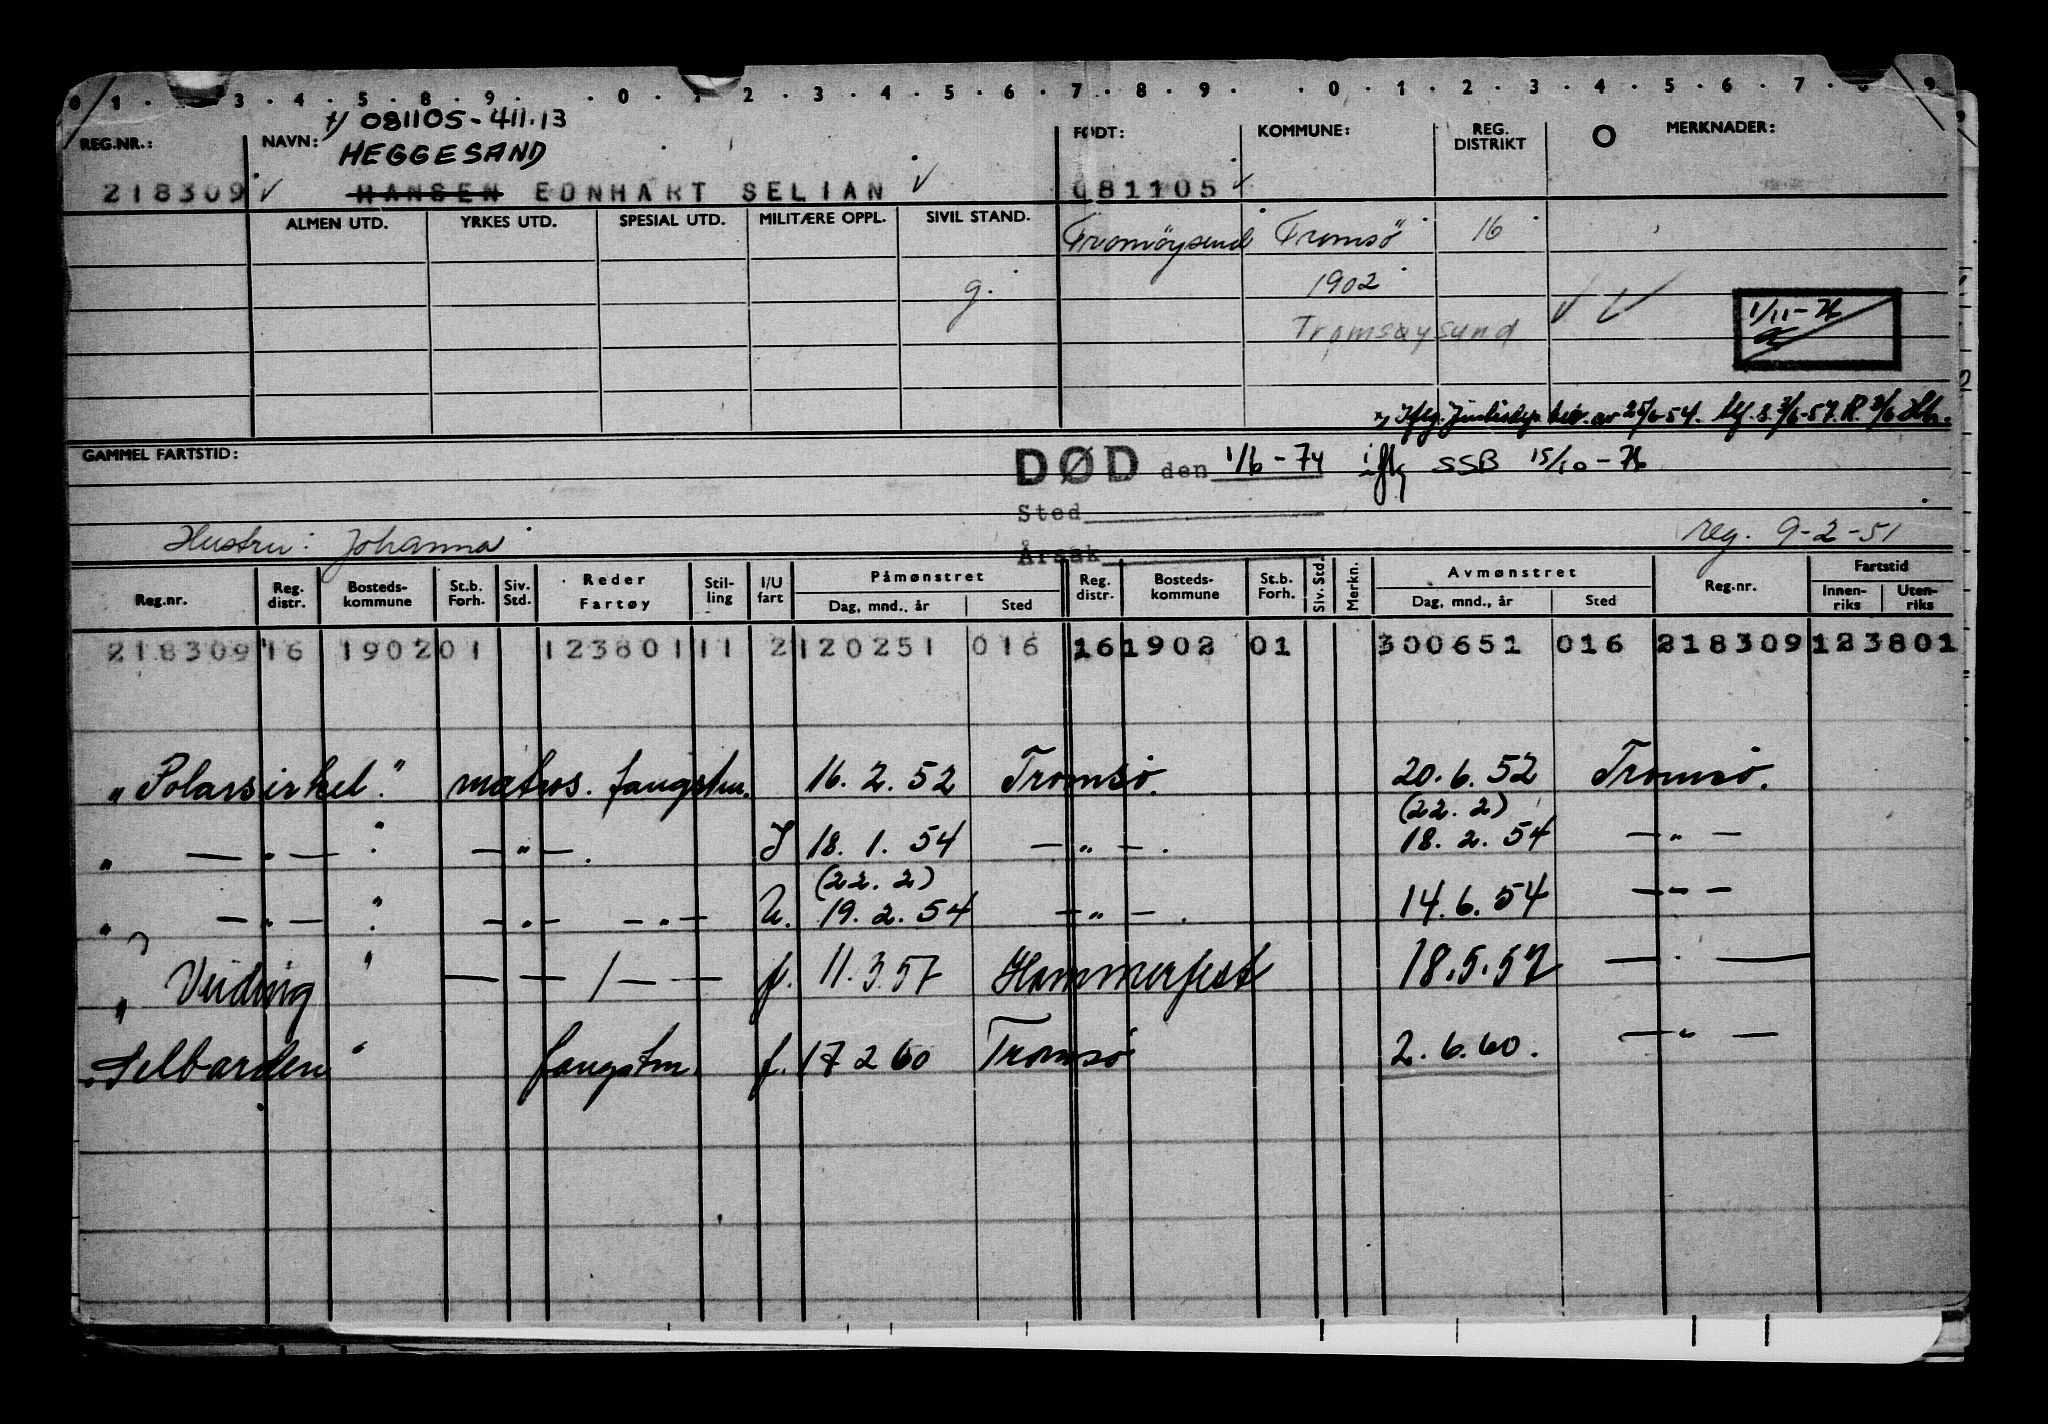 0 1 . 3 . 4 . 5 . 8 . 9 . . 0 . 1 . 2 . 3 . 4 . 5 . 6 . 7 . 8 . 9 . . 0 . 1 . 2 . 3 . 4 . 5 . 6 . 7 . 8 . 9
x) 081105-411.13
REG.NR.: NAVN: FØDT: KOMMUNE: REG. DISTRIKT O MERKNADER:
HEGGESAND
218309 HANSEN EDNHART SELIAN 081105
ALMEN UTD. YRKES UTD. SPESIAL UTD. MILITÆRE OPPL. SIVIL STAND. Tromöysund Tromsö 16
g. 1902
Tromsøysund 1/11-76
av 25/6-54. 3/6-57.
GAMMEL FARTSTID: DØD den 1/6-74 iflg SSB 15/10-76
Sted
Hustru: Johanna reg. 9-2-51
Årsak
Reg.nr. Reg. distr. Bosteds-kommune St.b. Forh. Siv. Std. Reder Fartøy Stil-ling I/U fart Påmønstret Dag, mnd., år Sted Reg. distr. Bosteds-kommune St.b. Forh. Siv. Std. Merkn. Avmønstret Dag, mnd., år Sted Reg.nr. Fartstid Innen-riks Uten-riks
218309 16 1902 01 123801 11 2 120251 016 16 1902 01 300651 016 218309 123801
"Polarsirkel." matros. fangstm. 16. 2. 52 Tromsø. 20. 6. 52 Tromsø.
(22. 2)
" — " — " — " — . I 18. 1. 54 — " — . 18. 2. 54 — " —
(22. 2)
" — " — " — " — — " — U. 19. 2. 54 — " — . 14. 6. 54 — " —
" Veiding " — — / — — f. 11. 3 57 Hammerfest 18. 5. 57 — " —
"Selbarden" fangstm. f. 17 2 60 Tromsø 2. 6. 60. — " —